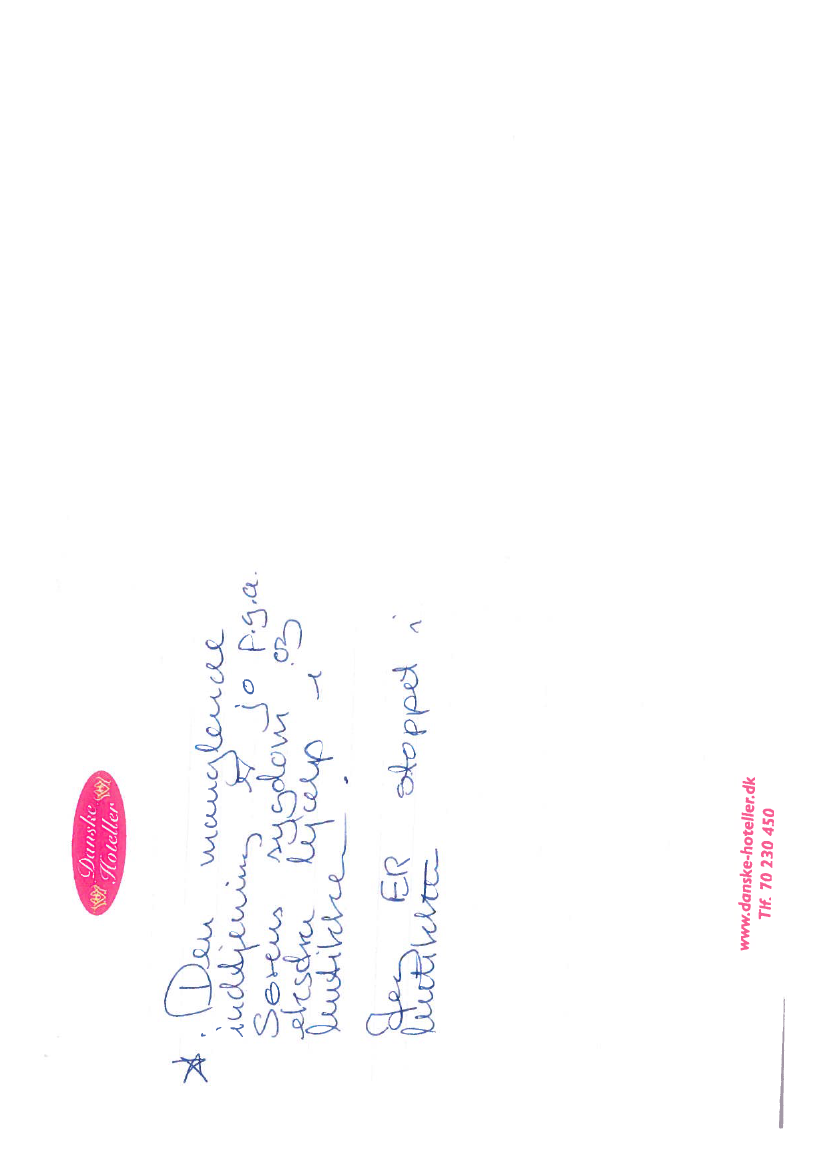 Danske
Hoteller
*. Den manglende
indtjening er jo p.g.a.
Sørens sygdom og
ekstra hjælp i
butikken.
Jeg ER stoppet i
butikken
www.danske-hoteller.dk
Tlf. 70 230 450